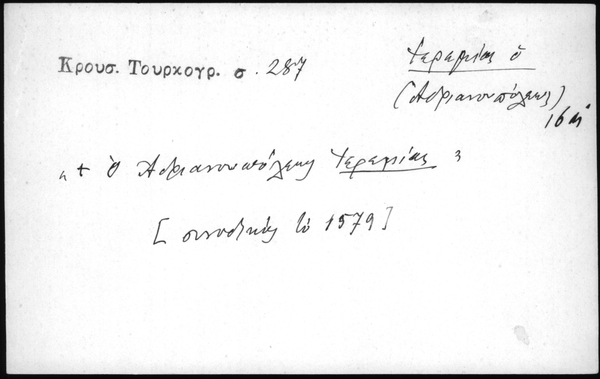 Κρουσ. Τουρκογρ. σ. 287
Ἱερεμίας ὁ
(Ἀδριανουπόλεως)
16 αἰ
« + ὁ Ἀδριανουπόλεως Ἱερεμίας »
[συνοδικῶς τῷ 1579]